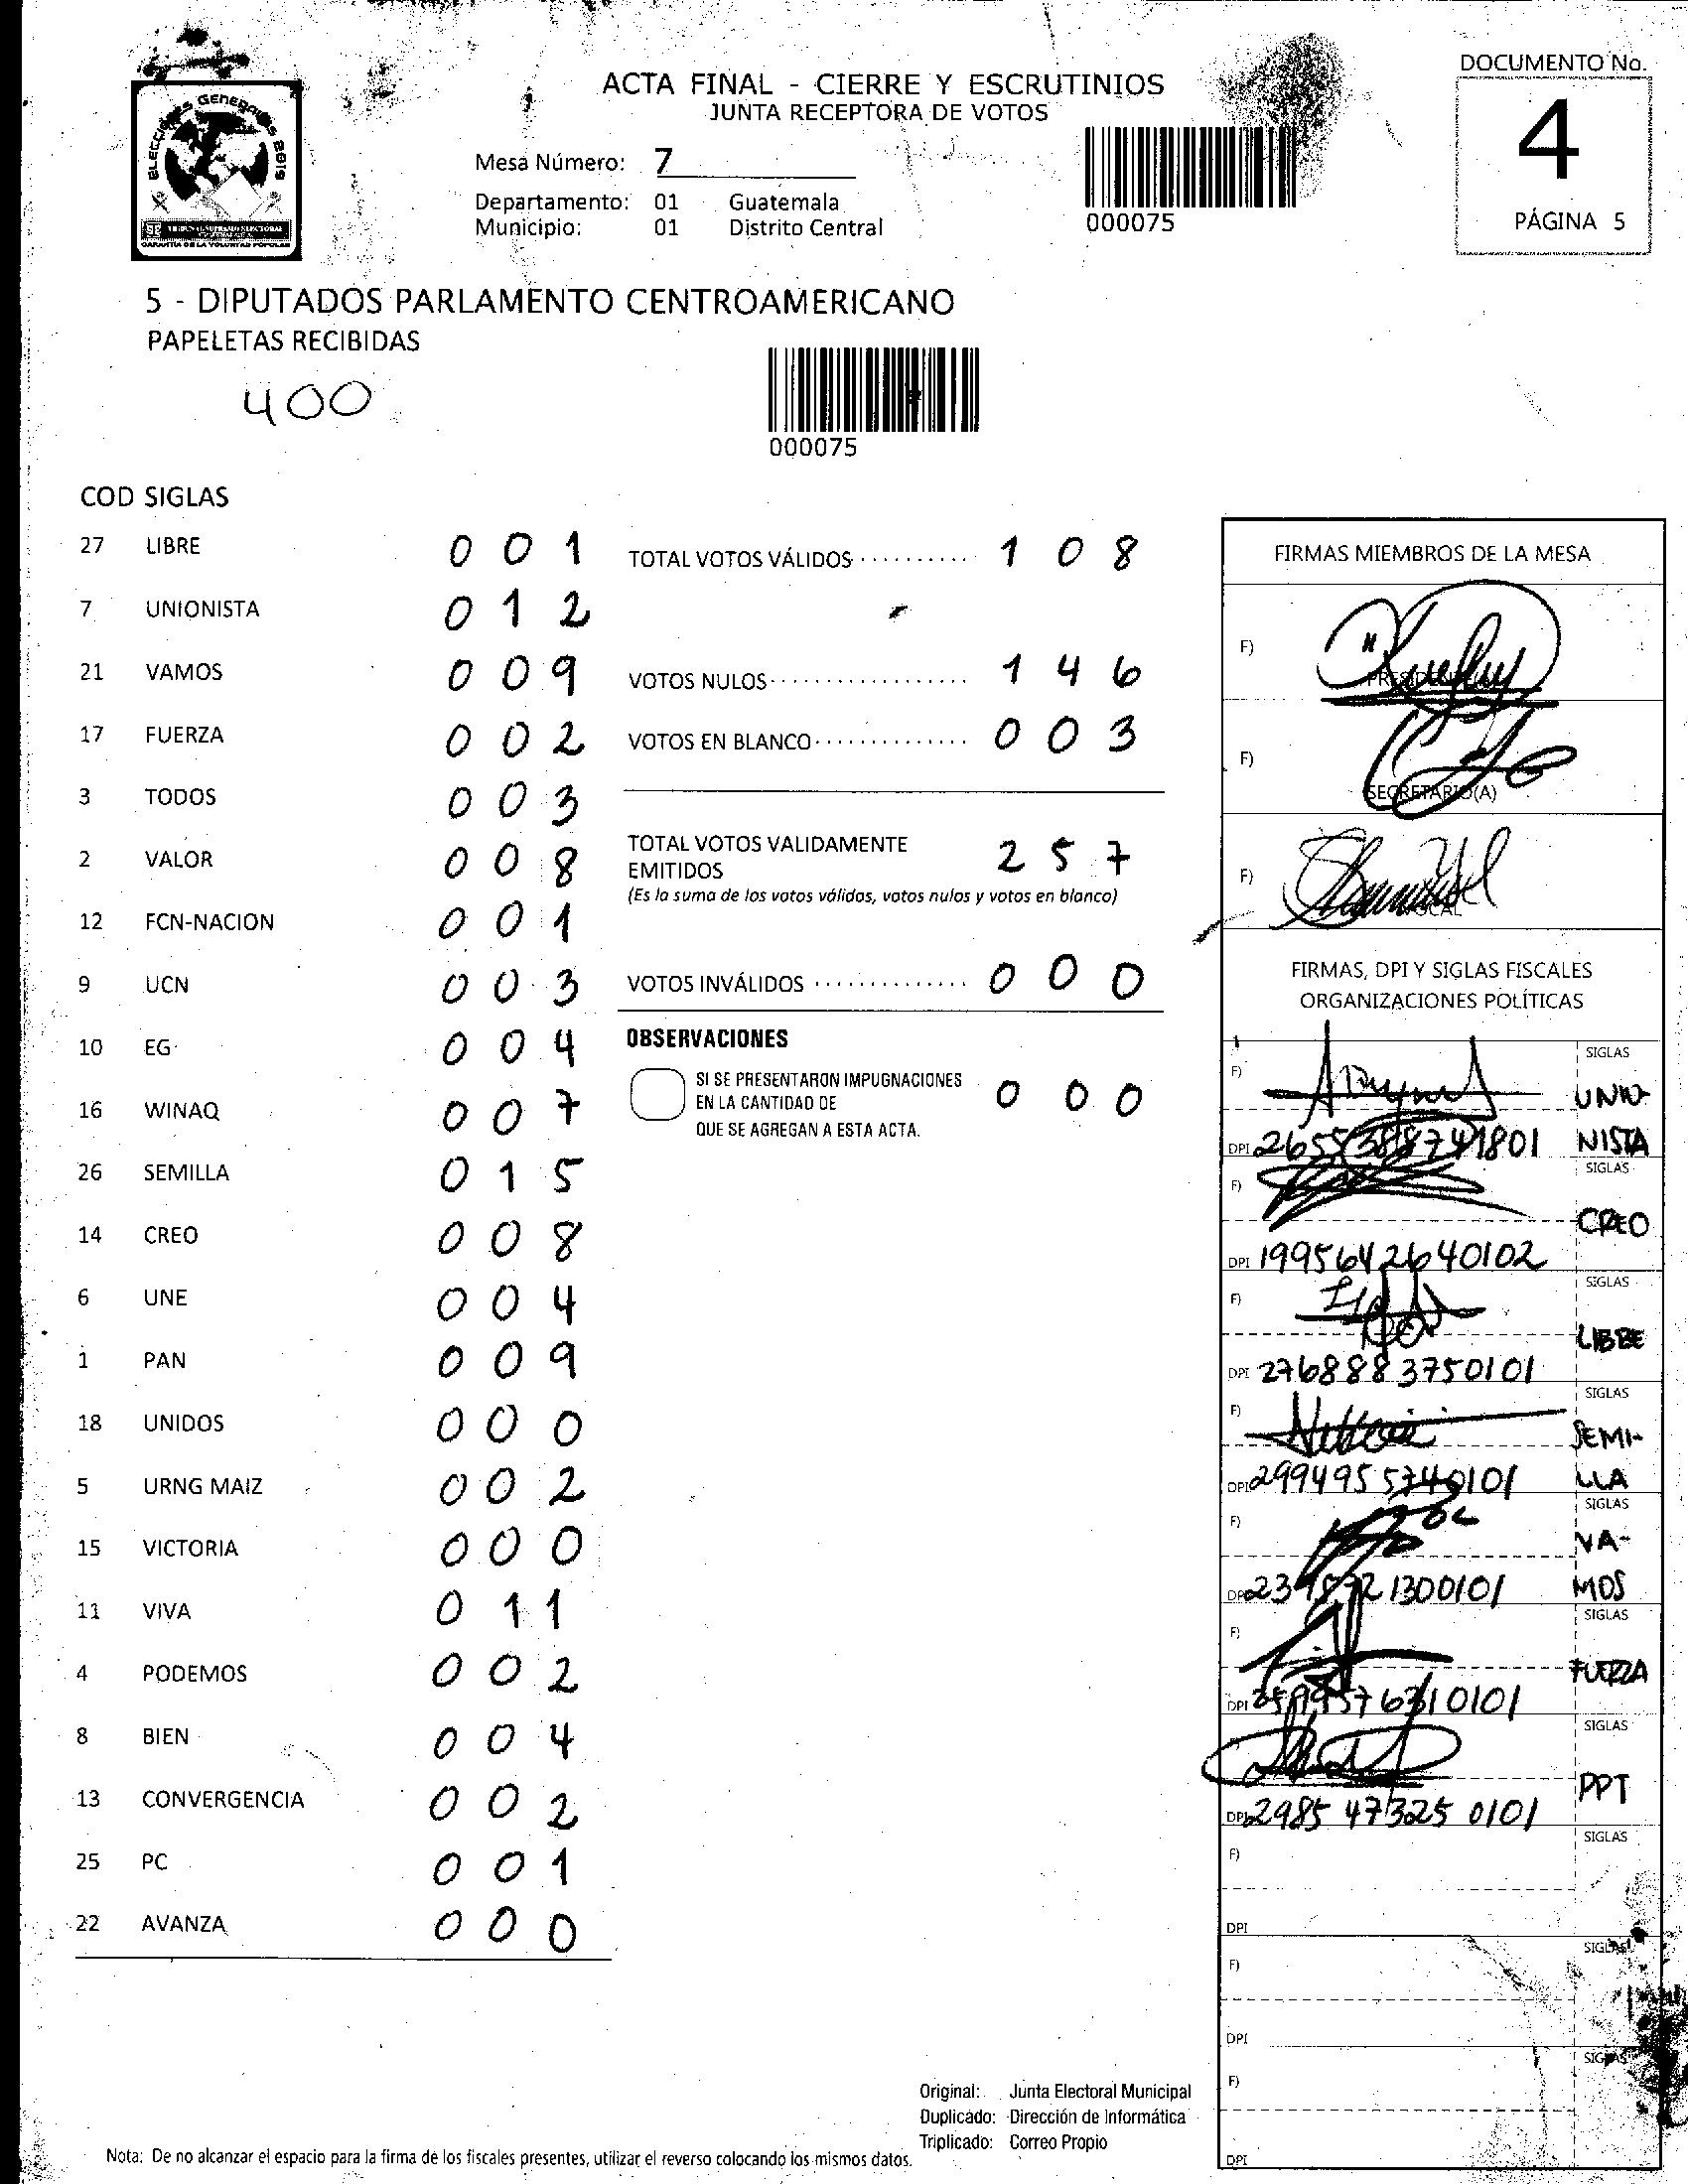 DOCUMENTO No.
4
PÁGINA 5
ELECCIONES GENERALES 2019
TRIBUNAL SUPREMO ELECTORAL
GARANTÍA DE LA VOLUNTAD POPULAR
ACTA FINAL - CIERRE Y ESCRUTINIOS
JUNTA RECEPTORA DE VOTOS
Mesa Número: 7
Departamento: 01 Guatemala
Municipio: 01 Distrito Central
000075
5 - DIPUTADOS PARLAMENTO CENTROAMERICANO
PAPELETAS RECIBIDAS
400
000075
COD SIGLAS
27 LIBRE 0 0 1
7 UNIONISTA 0 1 2
21 VAMOS 0 0 9
17 FUERZA 0 0 2
3 TODOS 0 0 3
2 VALOR 0 0 8
12 FCN-NACION 0 0 1
9 UCN 0 0 3
10 EG 0 0 4
16 WINAQ 0 0 7
26 SEMILLA 0 1 5
14 CREO 0 0 8
6 UNE 0 0 4
1 PAN 0 0 9
18 UNIDOS 0 0 0
5 URNG MAIZ 0 0 2
15 VICTORIA 0 0 0
11 VIVA 0 1 1
4 PODEMOS 0 0 2
8 BIEN 0 0 4
13 CONVERGENCIA 0 0 2
25 PC 0 0 1
22 AVANZA 0 0 0
TOTAL VOTOS VÁLIDOS 1 0 8
VOTOS NULOS 1 4 6
VOTOS EN BLANCO 0 0 3
TOTAL VOTOS VALIDAMENTE
EMITIDOS 2 5 7
(Es la suma de los votos válidos, votos nulos y votos en blanco)
VOTOS INVÁLIDOS 0 0 0
OBSERVACIONES
SI SE PRESENTARON IMPUGNACIONES
EN LA CANTIDAD DE 0 0 0
QUE SE AGREGAN A ESTA ACTA.
FIRMAS MIEMBROS DE LA MESA
F)
F)
SECRETARIO(A)
F)
VOCAL
FIRMAS, DPI Y SIGLAS FISCALES
ORGANIZACIONES POLÍTICAS
SIGLAS
F) UNIO-
DPI NISTA
SIGLAS
F) CREO
DPI 1995642640102
SIGLAS
F) LIBRE
DPI 2768883750101
SIGLAS
F) SEMI-
DPI 2994955740101 LLA
SIGLAS
F) VA-
DPI MOS
SIGLAS
F) FUERZA
DPI
SIGLAS
PPT
DPI 2985 47325 0101
SIGLAS
F)
DPI
SIGLAS
F)
DPI
SIGLAS
F)
DPI
Original: Junta Electoral Municipal
Duplicado: Dirección de Informática
Triplicado: Correo Propio
Nota: De no alcanzar el espacio para la firma de los fiscales presentes, utilizar el reverso colocando los mismos datos.